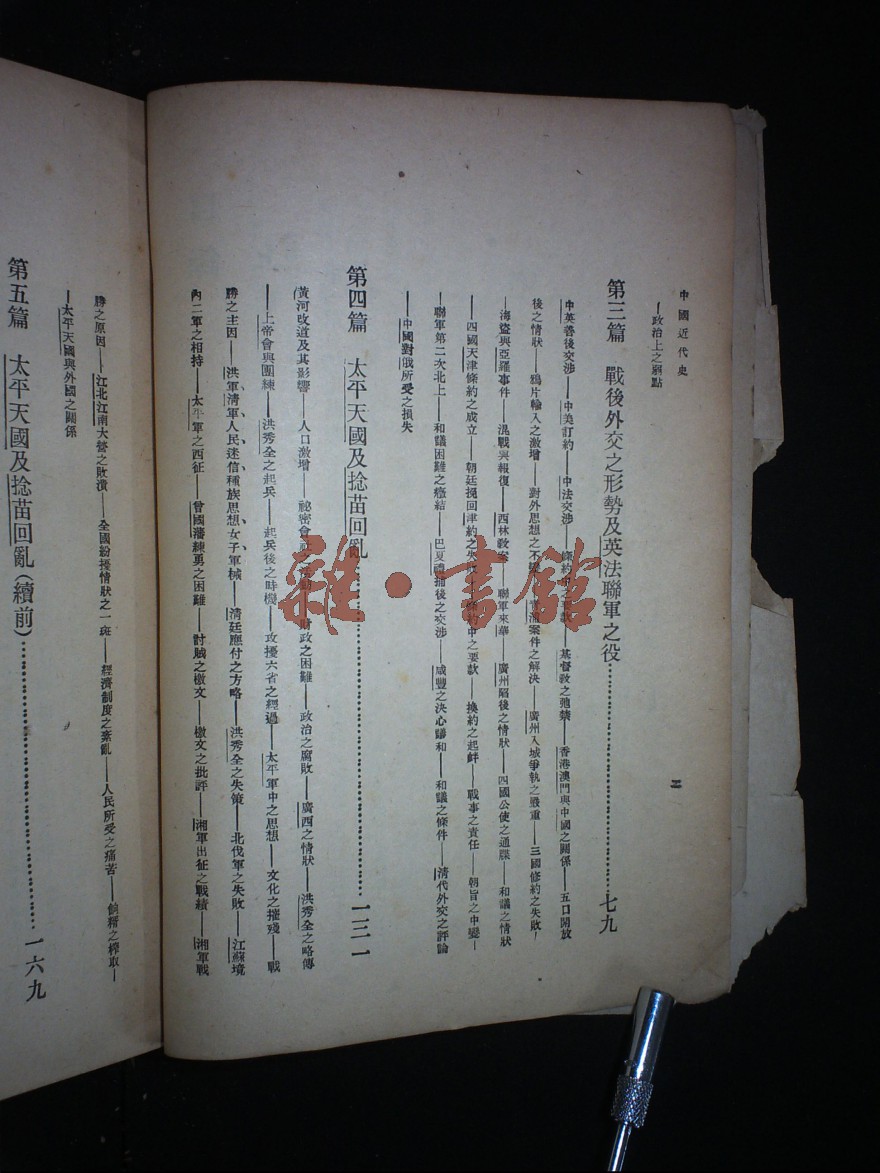 中國近代史
二
—政治上之弱點
第三篇 戰後外交之形勢及英法聯軍之役……七九
中英善後交涉——中美訂約——中法交涉——條約中之要款——基督教之弛禁——香港澳門與中國之關係——五口開放
後之情狀——鴉片輸入之激增——對外思想之不 案件之解決——廣州入城爭執之嚴重——三國修約之失敗—
—海盜與亞羅事件——混戰與報復——西林教案——聯軍來華——廣州陷後之情狀——四國公使之通牒——和議之情狀
—四國天津條約之成立——朝廷挽回津約之失敗——條約中之要款——換約之起衅——戰事之責任——朝旨之中變—
—聯軍第二次北上——和議困難之癥結——巴夏禮捕後之交涉——咸豐之決心議和——和議之條件——清代外交之評論
—中國對俄所受之損失
第四篇 太平天國及捻苗回亂……一三一
黃河改道及其影響——人口激增——祕密會社之 財政之困難——政治之腐敗——廣西之情狀——洪秀全之略傳
—上帝會與團練——洪秀全之起兵——起兵後之時機——攻擾六省之經過——太平軍中之思想——文化之摧殘——戰
勝之主因——洪軍、清軍、人民、迷信、種族思想、女子、軍械——清廷應付之方略——洪秀全之失策——北伐軍之失敗——江蘇境
內二軍之相持——太平軍之西征——曾國藩練勇之困難——討賊之檄文——檄文之批評——湘軍出征之戰績——湘軍戰
勝之原因——江北江南大營之敗潰——全國紛擾情狀之一斑——經濟制度之紊亂——人民所受之痛苦——餉糈之榨取—
—太平天國與外國之關係
第五篇 太平天國及捻苗回亂(續前)……一六九
雜·書館